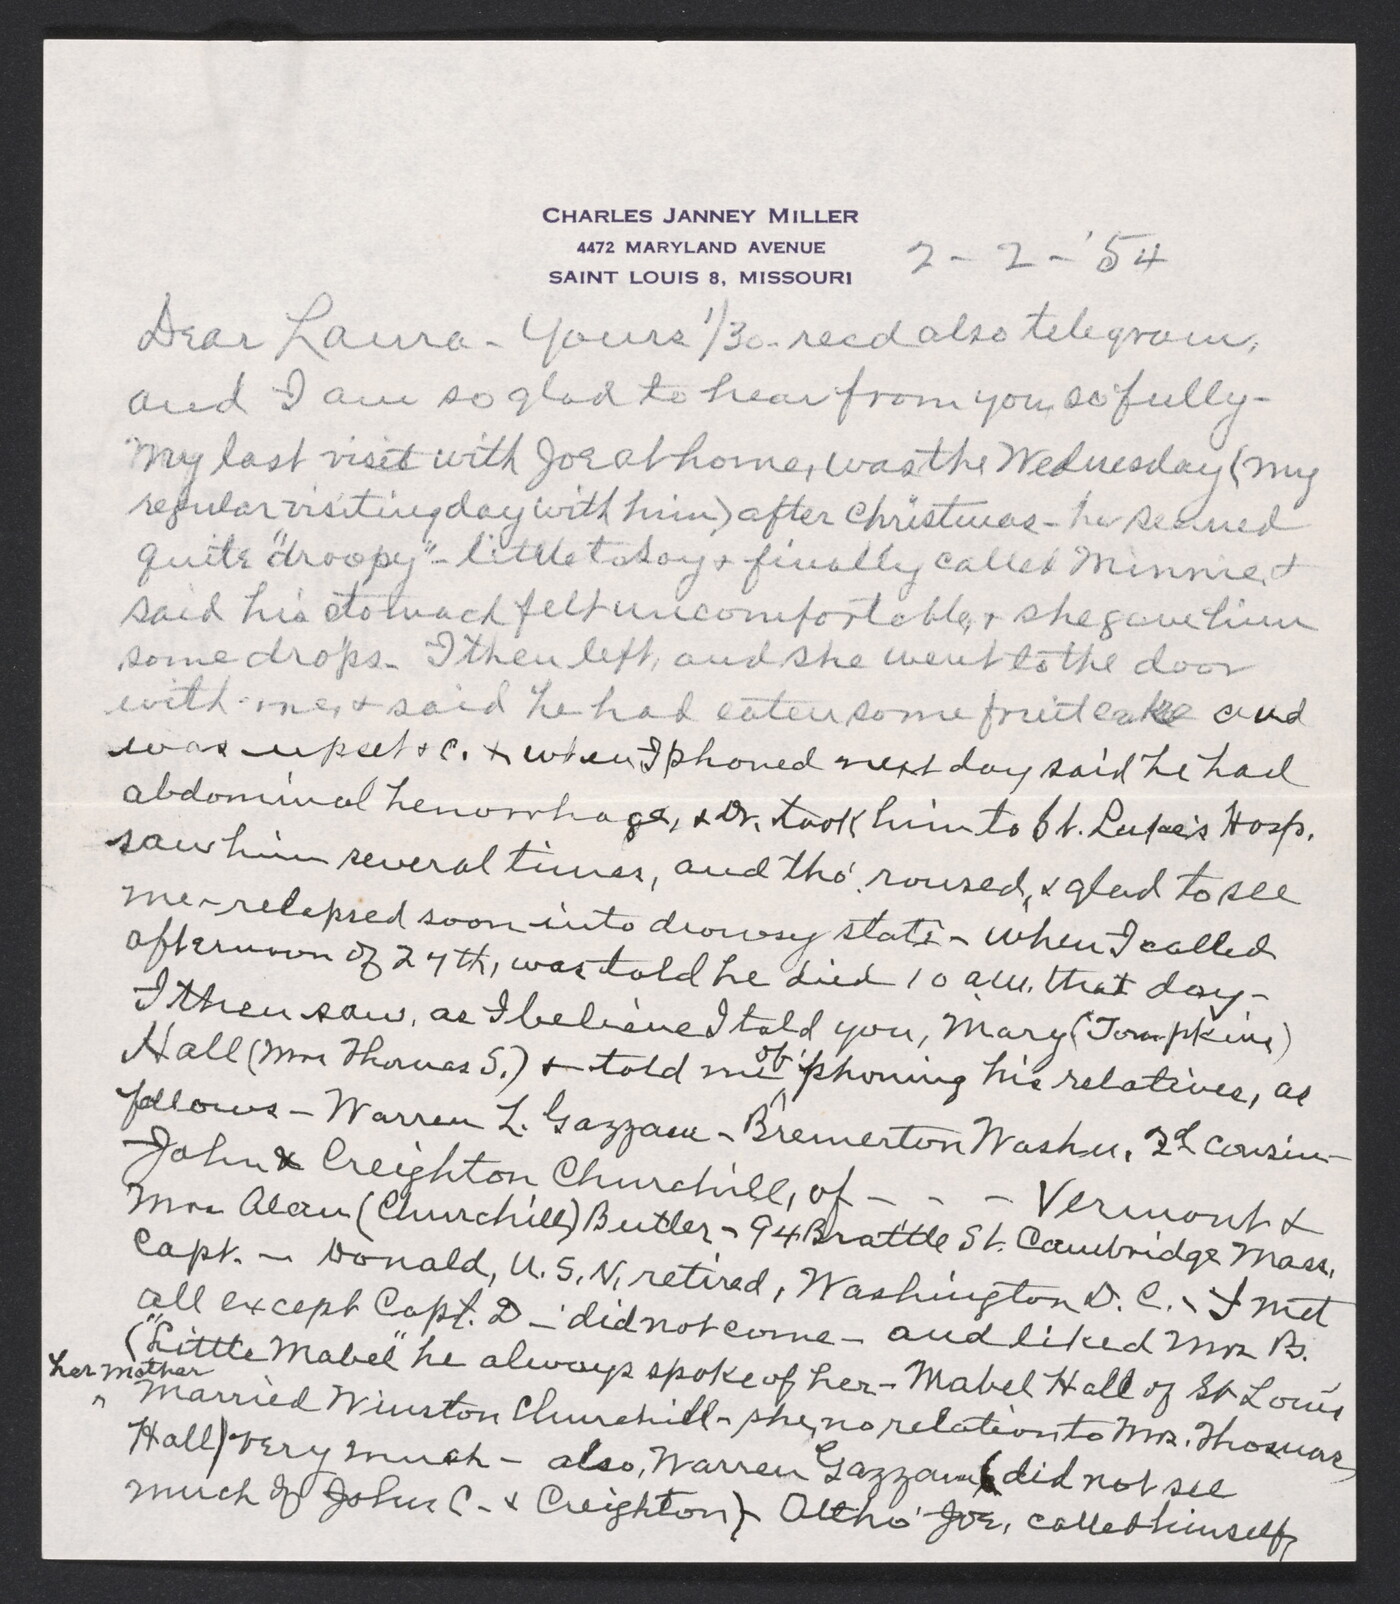 CHARLES JANNEY MILLER
4472 MARYLAND AVENUE
SAINT LOUIS 8, MISSOURI
2 - 2 - '54
Dear Laura - Yours 1/30 - recd also telegram,
and I am so glad to hear from you so fully -
My last visit with Joe at home, was the Wednesday (my
regular visiting day with him) after Christmas - he seemed
quite "droopy" - little to say & finally called Minnie, &
said his stomach felt uncomfortable, & she gave him
some drops - I then left, and she went to the door
with me, & said he had eaten some fruit cake and
was upset &c. & when I phoned next day said he had
abdominal hemorrhage, & Dr. took him to St. Luke's Hosp.
saw him several times, and tho' roused, & glad to see
me - relapsed soon into drowsy state - when I called
afternoon of 27th, was told he died 10 a.m. that day -
I then saw, as I believe I told you, Mary (Tompkins)
Hall (Mrs Thomas S.) & told me of 'phoning his relatives, as
follows - Warren L. Gazzam - Bremerton Washn, 2d cousin -
John & Creighton Churchill, of - - - Vermont &
Mrs Alan (Churchill) Butler - 94 Brattle St. Cambridge Mass,
Capt. - Donald, U.S.N, retired, Washington D.C. - I met
all except Capt. D - did not come - and liked Mrs B.
("Little Mabel" he always spoke of her - Mabel Hall of St Louis
her mother
" Married Winston Churchill - she, no relation to Mrs. Thomas
Hall) very much - also, Warren Gazzam (did not see
much of John C - & Creighton) - Altho' Joe, called himself,